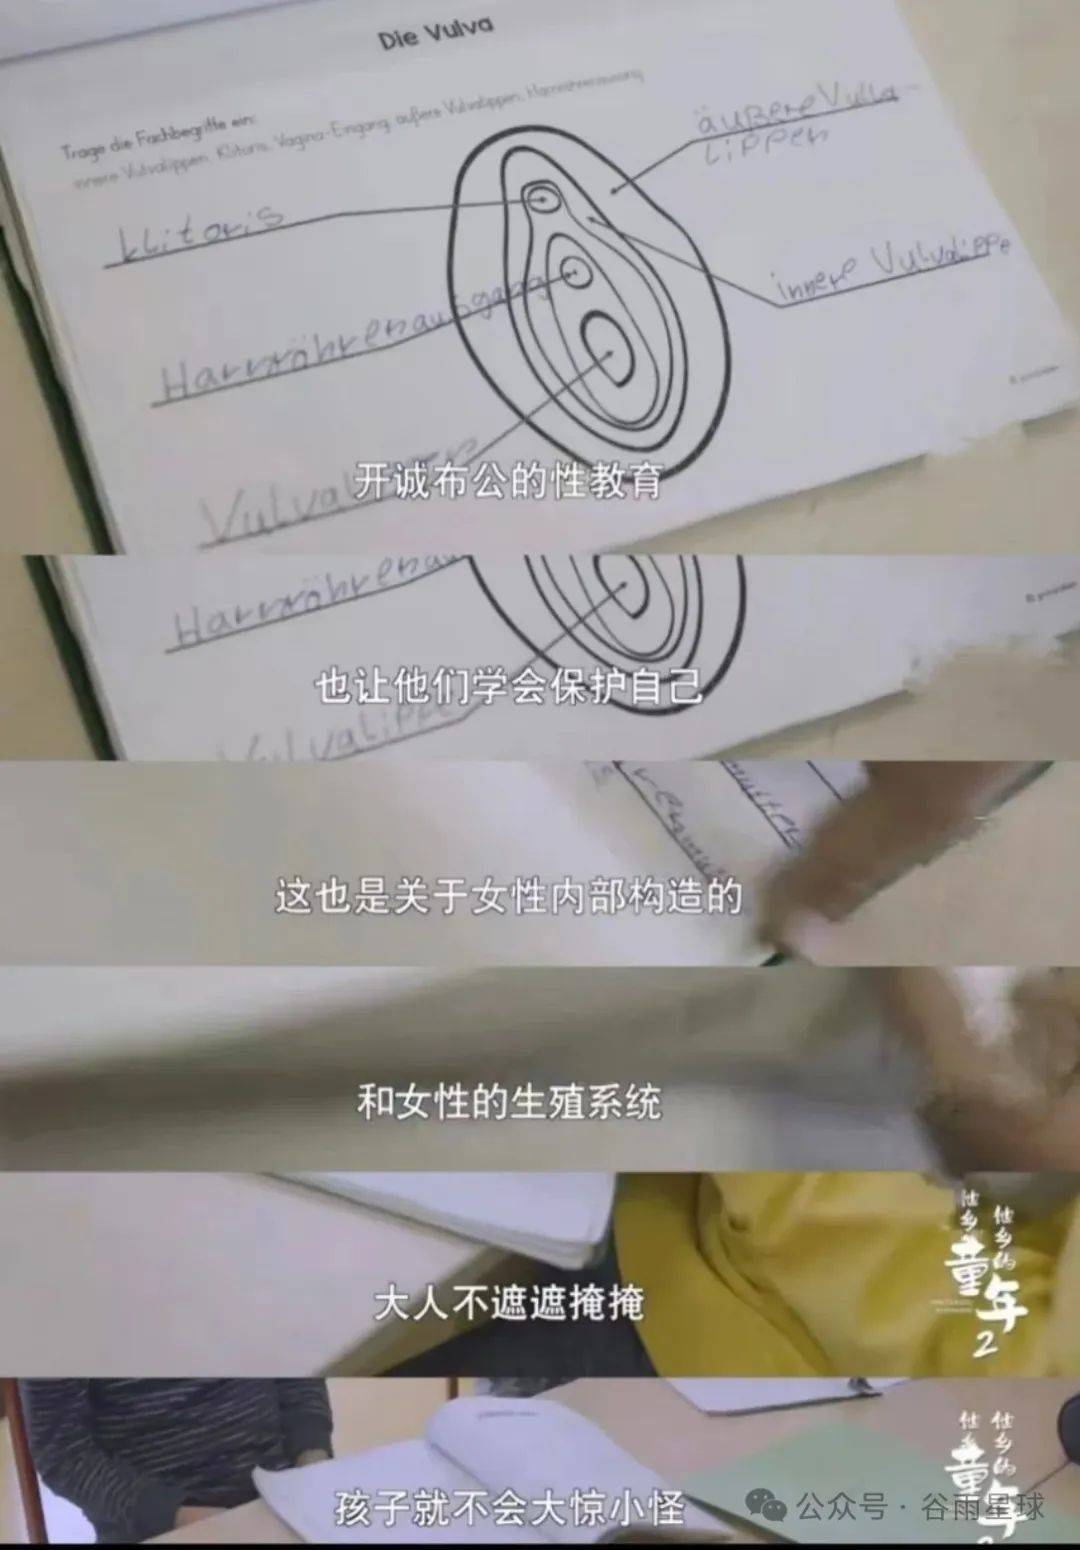 Die Vulva
Trage die Fachbegriffe ein:
innere Vulvalippen, Klitoris, Vagina-Eingang, äußere Vulvalippen, Harnröhrenausgang
äußere Vulva-
lippen
klitoris
innere Vulvalippe
Harnröhrenausgang
开诚布公的性教育
也让他们学会保护自己
Vulvalippe
这也是关于女性内部构造的
和女性的生殖系统
他乡的童年2
大人不遮遮掩掩
他乡的童年
孩子就不会大惊小怪
公众号·谷雨星球